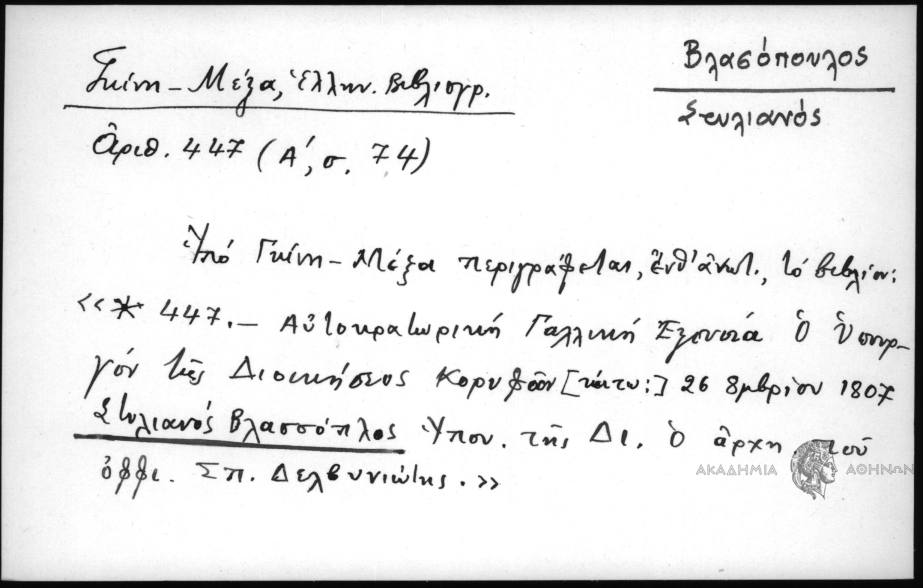 Γκίνη – Μέξα, Ἑλλην. Βιβλιογρ.
Ἀριθ. 447 (Α΄, σ. 74)
Βλασόπουλος
Στυλιανός
Ὑπό Γκίνη – Μέξα περιγράφεται, ἔνθ' ἀνωτ., τό βιβλίον:
«* 447. – Αὐτοκρατωρική Γαλλική Ἐξουσία Ὁ Ὑπουρ-
γόν τῆς Διοικήσεως Κορυφῶν [κάτω:] 26 8μβρίου 1807
Στυλιανός Βλασσόπλος Ὑπου. τῆς Δι. Ὁ ἀρχη. τοῦ
ὀφφι. Σπ. Δελβυνιώτης.»
ΑΚΑΔΗΜΙΑ ΑΘΗΝΩΝ